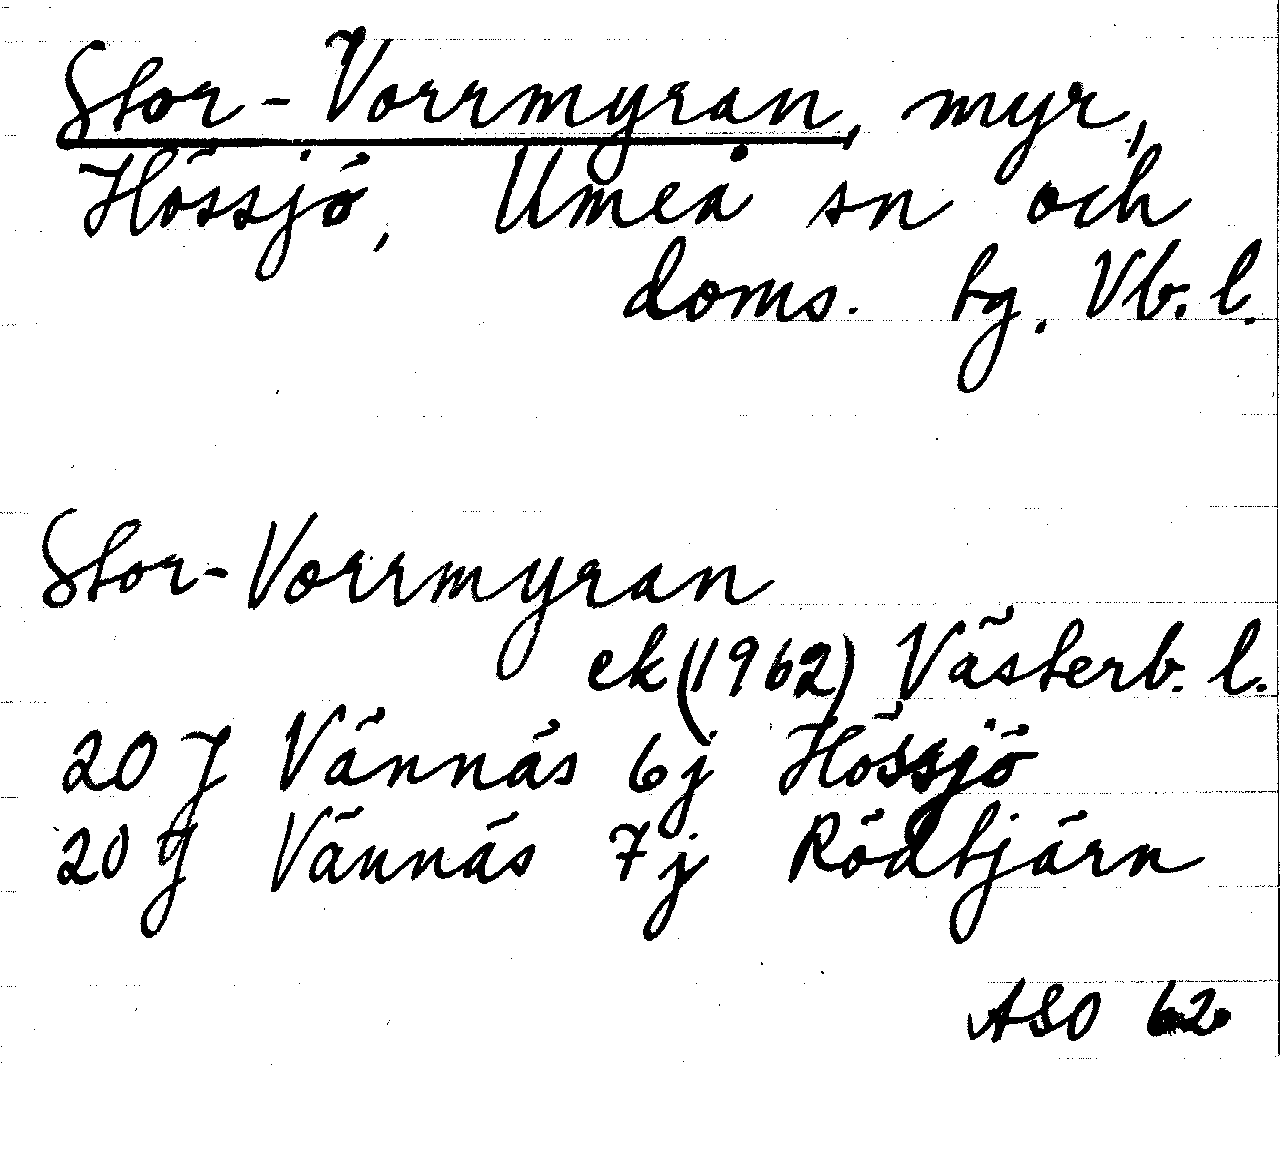 Stor-Vorrmyran, myr,
Hössjö, Umeå sn och
doms. tg. Vb. l.
Stor-Vorrmyran
ek (1962) Västerb. l.
20 J Vännäs 6j Hössjö
20 J Vännäs 7j Rödtjärn
ASO 62